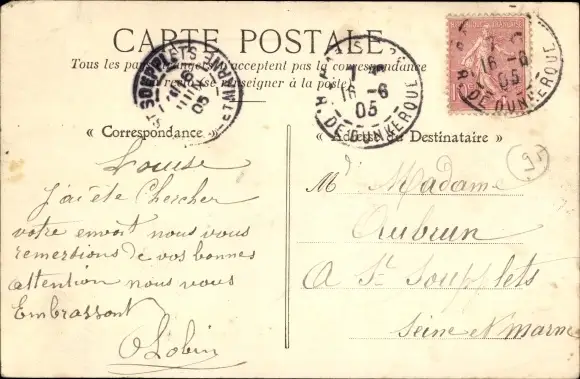 CARTE POSTALE
Tous les pays étrangers n'acceptent pas la correspondance
au recto, se renseigner à la poste
ST SOUPPLETS
SEINE ET MARNE
16
05
PARIS
R. DE DUNKERQUE
16 - 6
05
16 - 6
05
R. DE DUNKERQUE
« Correspondance »
« Adresse du Destinataire »
Louise
J'ai été Chercher
votre envoit nous vous
remersions de vos bonnes
attention nous vous
Embrassont
O Lobin
Md Madame
Aubrun
A St Soupplets
Seine et Marne